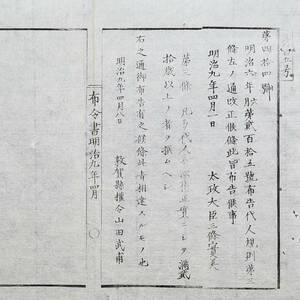 第四拾四號
明治六年㐧貳百拾五號布告代人規則第三
條左ノ通改正候條此旨布告候事
明治九年四月一日
太政大臣三條實美
第三條 凡ソ代人ハ 正實ニシテ滿貳
拾歳以上ノ者ヲ撰ムヘシ
右之通御布告有之候條此旨相達スルモノ也
明治九年四月八日
敦賀縣權令山田武甫
布令書明治九年四月